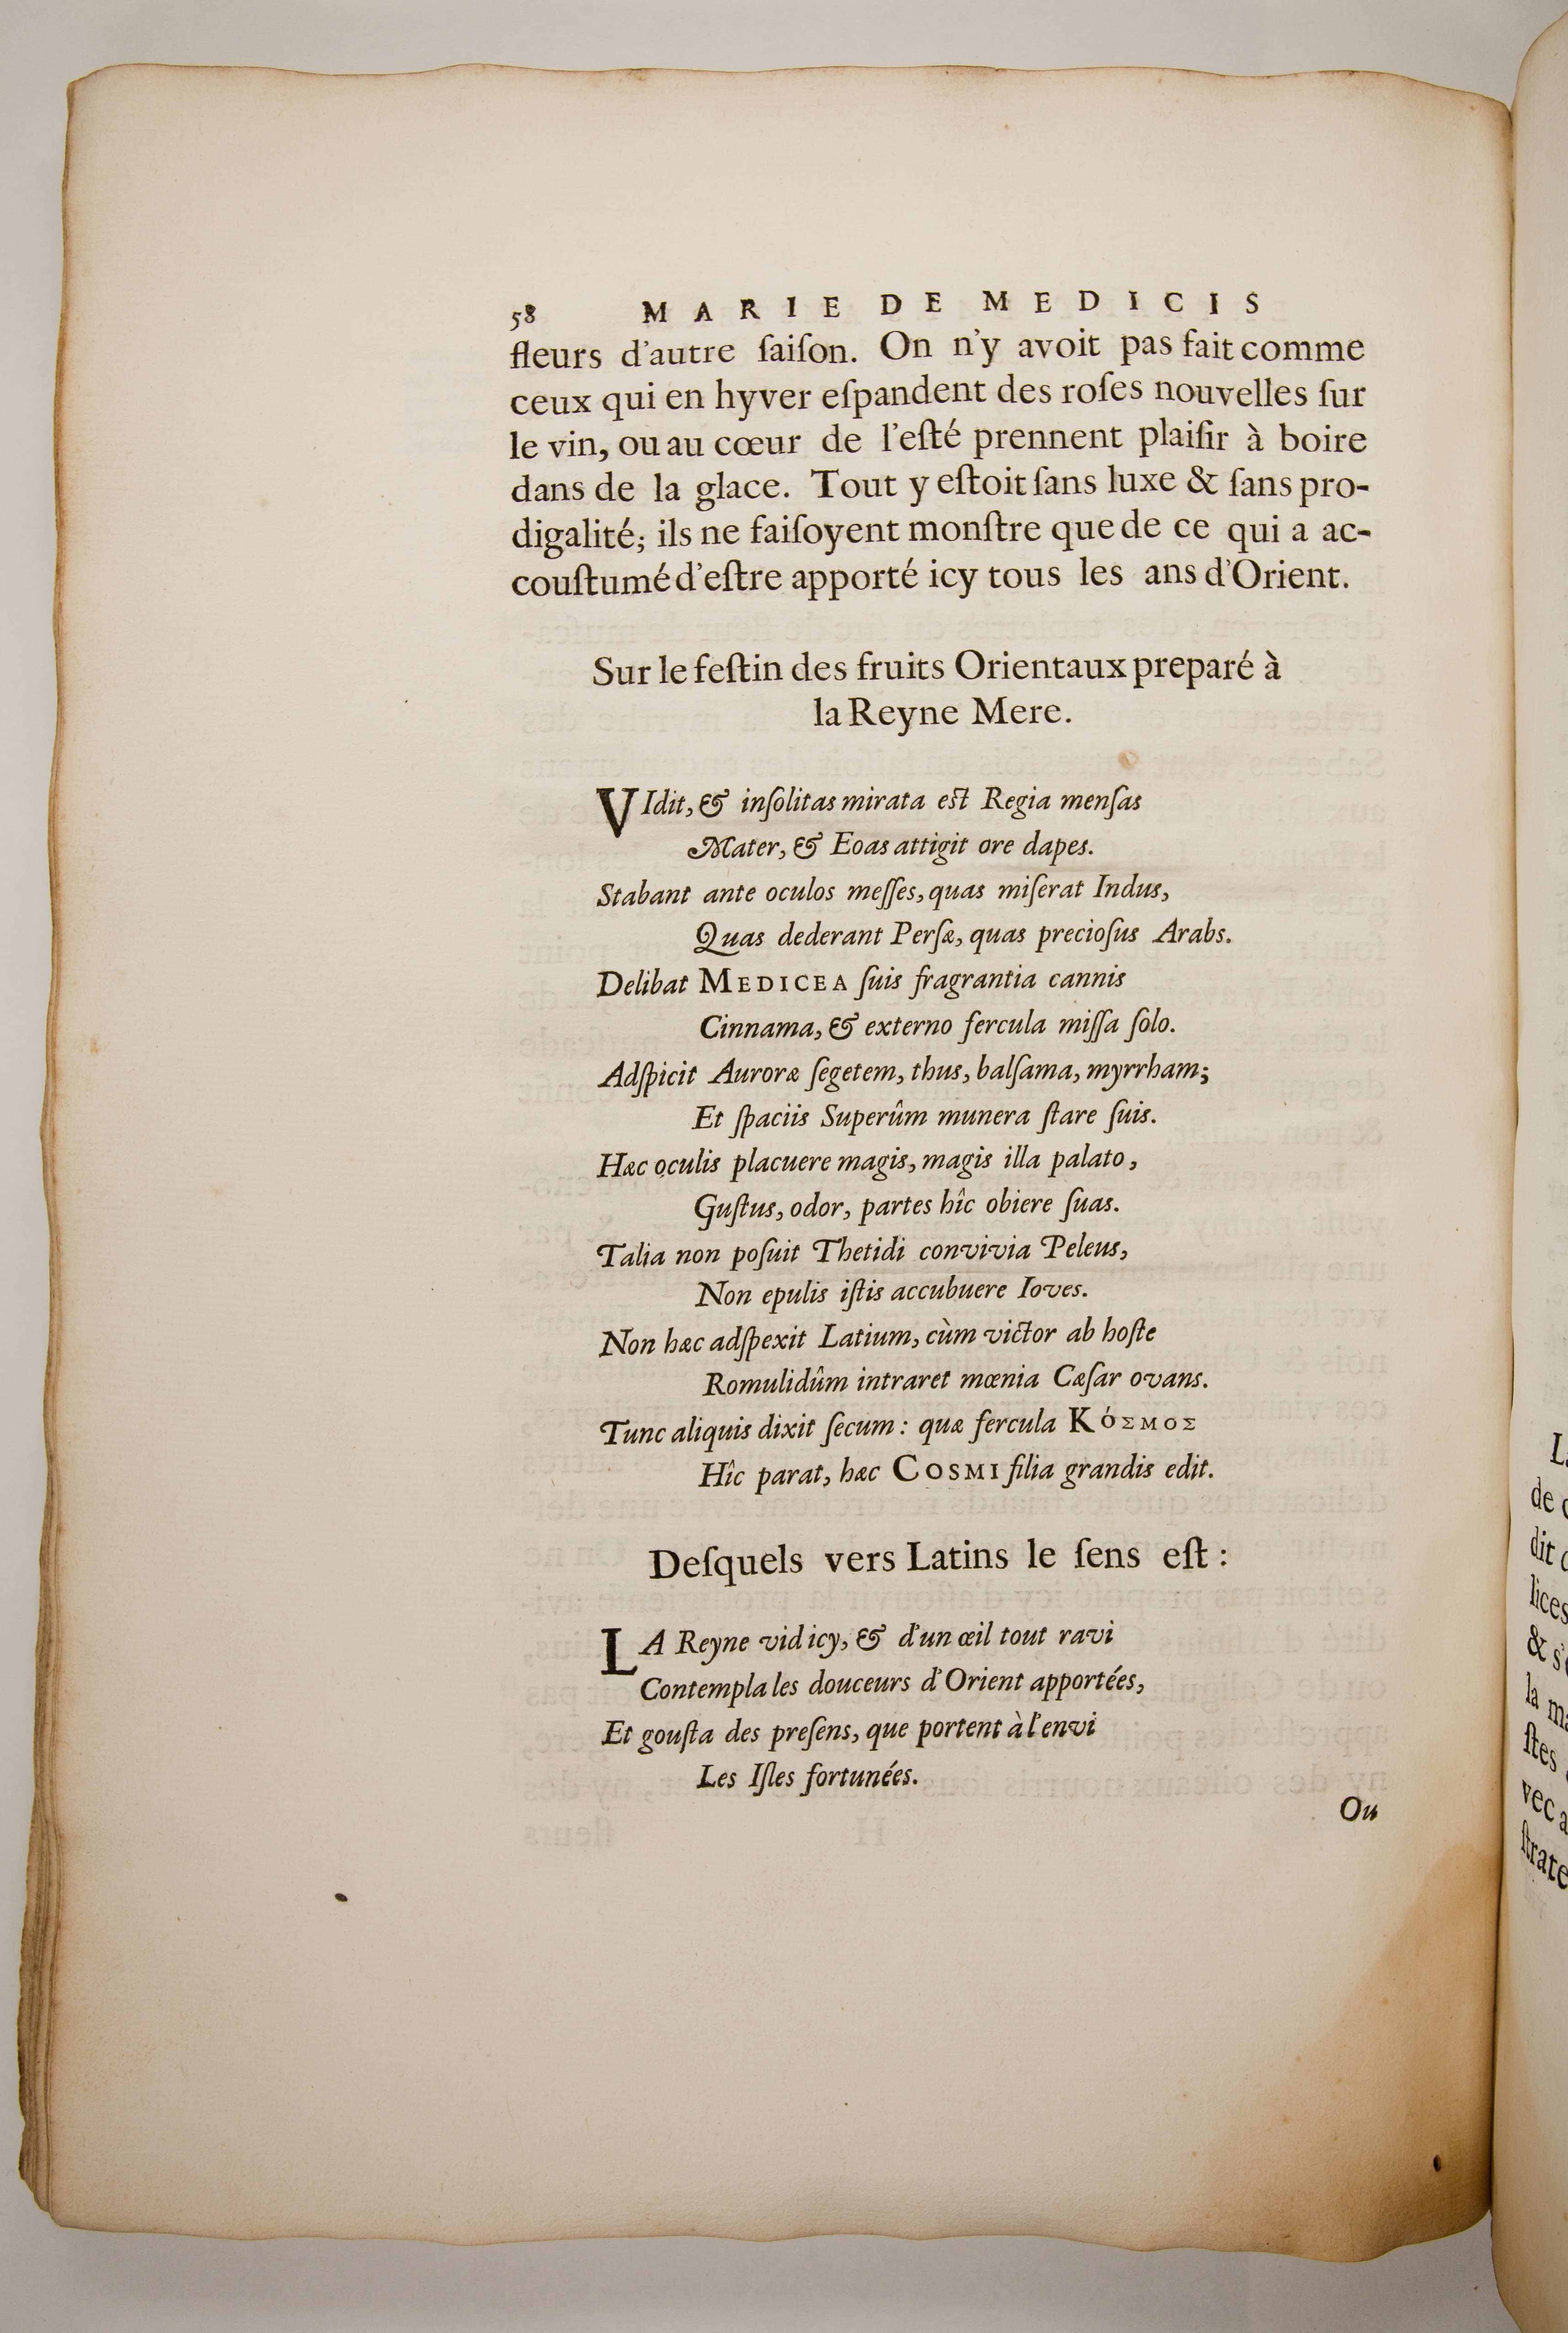 58 MARIE DE MEDICIS
fleurs d'autre ſaiſon. On n'y avoit pas fait comme
ceux qui en hyver eſpandent des roſes nouvelles ſur
le vin, ou au cœur de l'eſté prennent plaiſir à boire
dans de la glace. Tout y eſtoit ſans luxe & ſans pro-
digalité; ils ne faiſoyent monſtre que de ce qui a ac-
couſtumé d'eſtre apporté icy tous les ans d'Orient.
Sur le feſtin des fruits Orientaux preparé à
la Reyne Mere.
VIdit, & inſolitas mirata eſt Regia menſas
Mater, & Eoas attigit ore dapes.
Stabant ante oculos meſſes, quas miſerat Indus,
Quas dederant Perſæ, quas precioſus Arabs.
Delibat MEDICEA ſuis fragrantia cannis
Cinnama, & externo fercula miſſa ſolo.
Adſpicit Auroræ ſegetem, thus, balſama, myrrham;
Et ſpaciis Superûm munera ſtare ſuis.
Hæc oculis placuere magis, magis illa palato,
Guſtus, odor, partes hîc obiere ſuas.
Talia non poſuit Thetidi convivia Peleus,
Non epulis iſtis accubuere Ioves.
Non hæc adſpexit Latium, cùm victor ab hoſte
Romulidûm intraret mœnia Cæſar ovans.
Tunc aliquis dixit ſecum: quæ fercula ΚόΣΜΟΣ
Hîc parat, hæc COSMI filia grandis edit.
Deſquels vers Latins le ſens eſt:
LA Reyne vid icy, & d'un œil tout ravi
Contempla les douceurs d'Orient apportées,
Et gouſta des preſens, que portent à l'envi
Les Iſles fortunées.
Ou
de
dit
lices
& s'
la
ſtes
vec
ſtrate